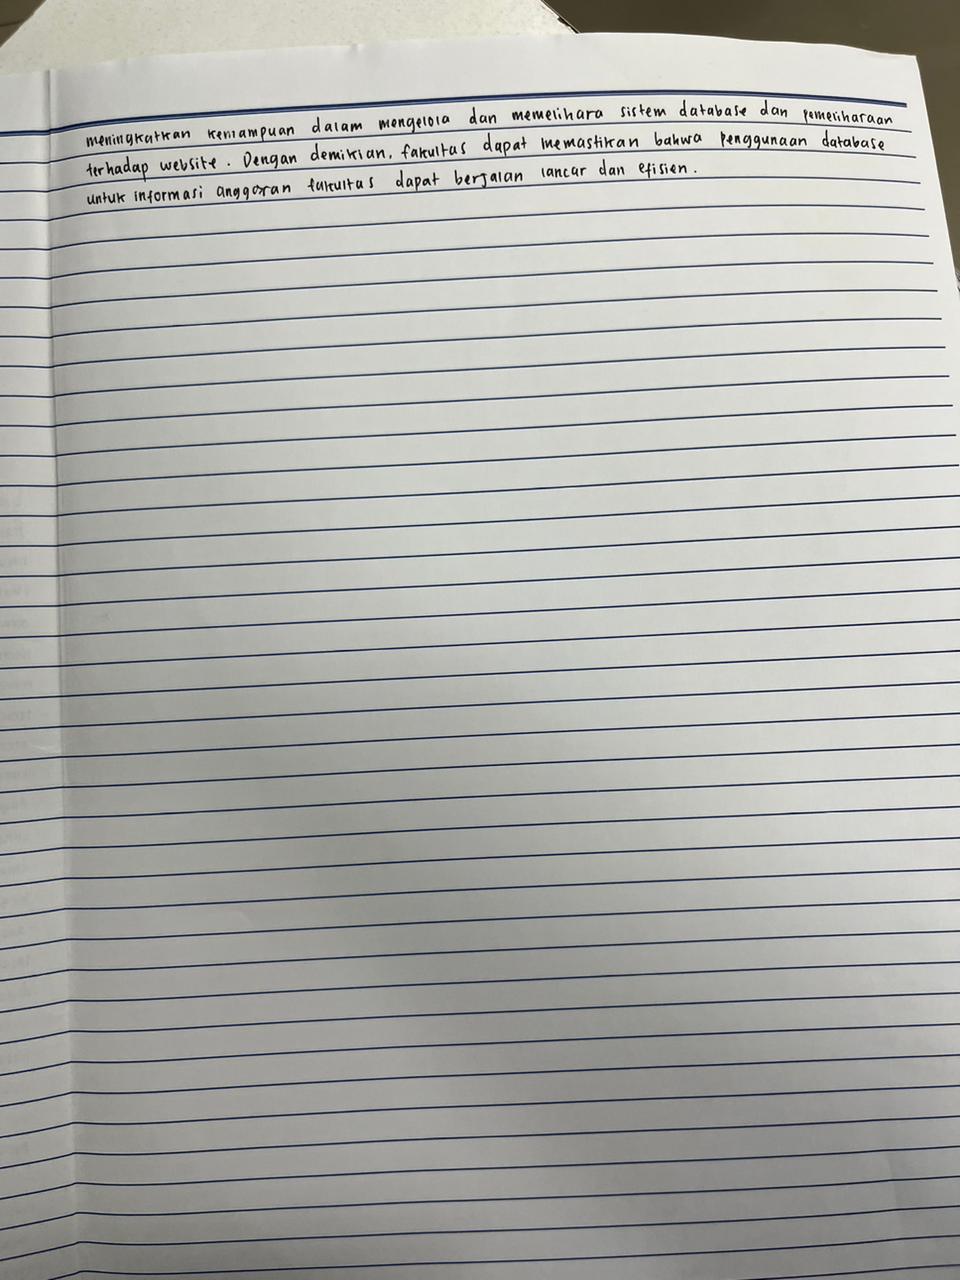 meningkatkan kemampuan dalam mengelola dan memelihara sistem database dan pemeliharaan
terhadap website. Dengan demikian, fakultas dapat memastikan bahwa penggunaan database
untuk informasi anggaran fakultas dapat berjalan lancar dan efisien.